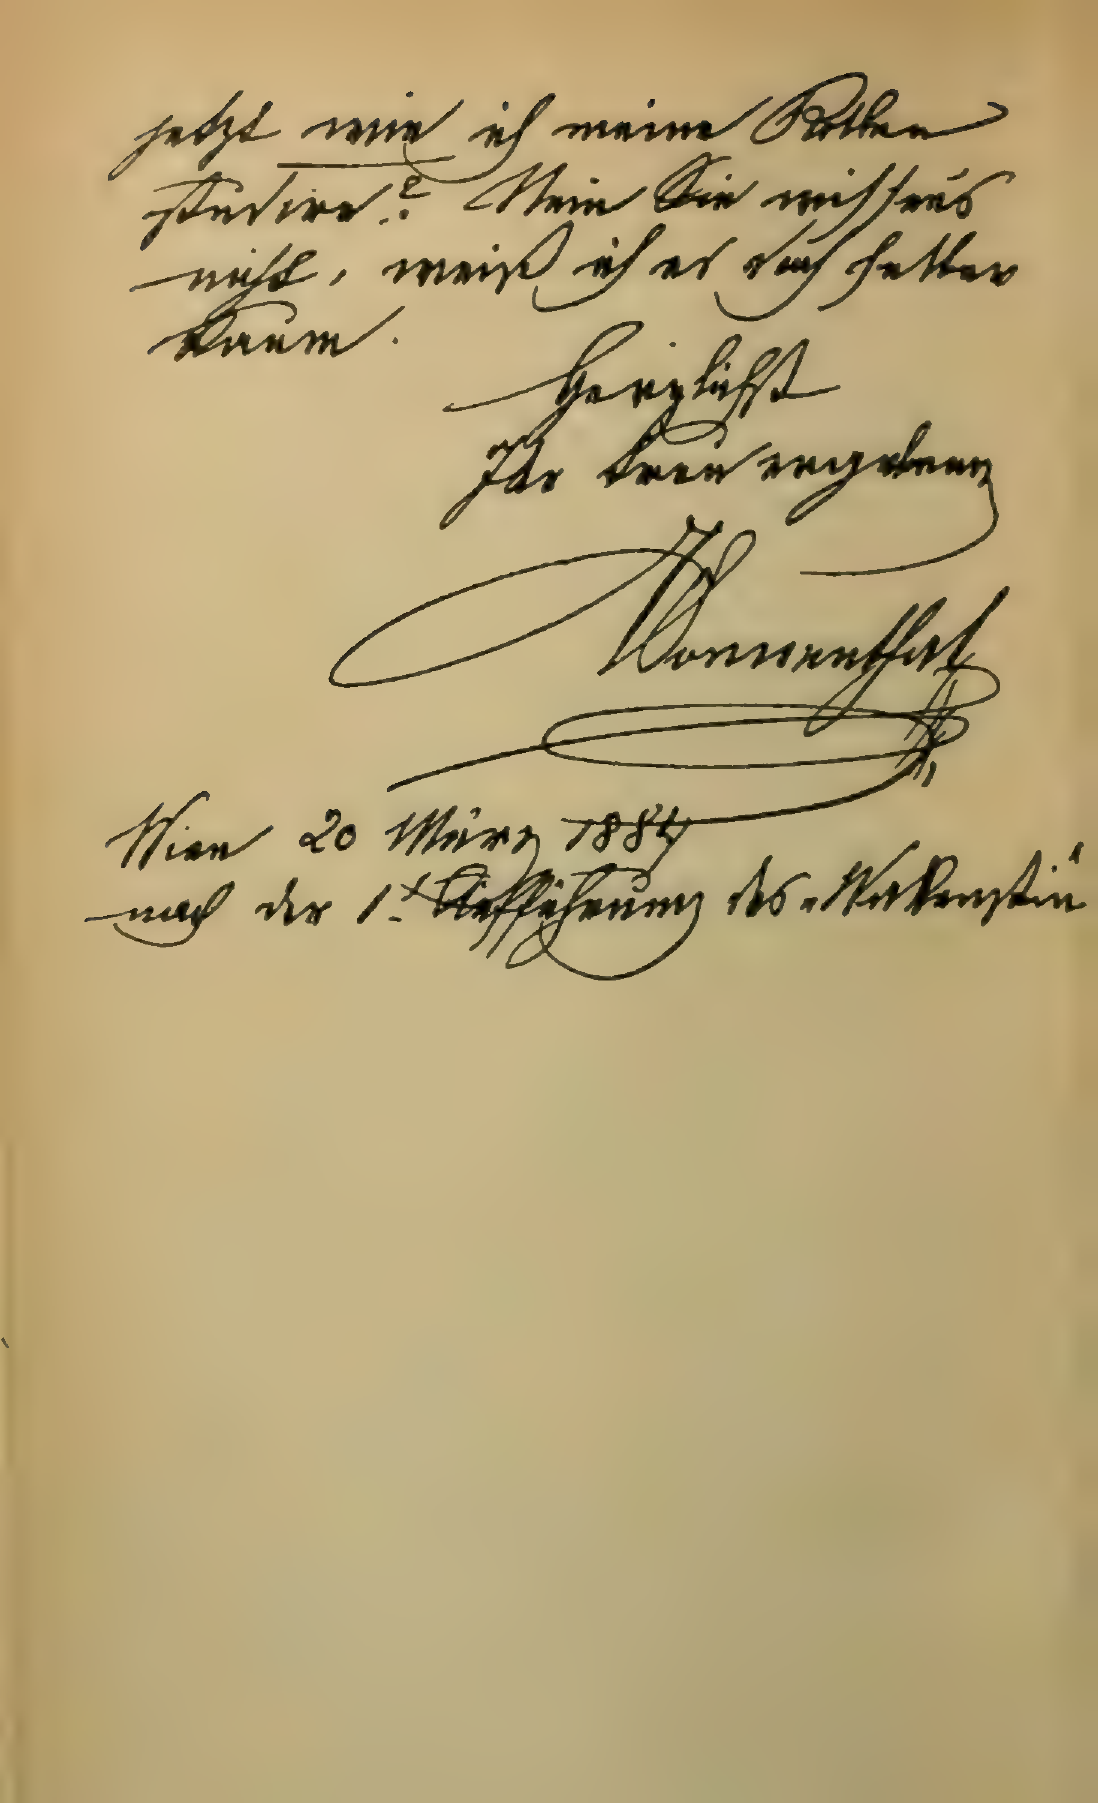 jetzt wie ich meine Rollen
studire? Nein Sie wissens
nicht, weiß ich es doch selber
kaum.
Herzlichst
Ihr treu ergebener
Sonnenthal
Wien 20 März 1884
nach der 1. Aufführung des „Wallenstein“